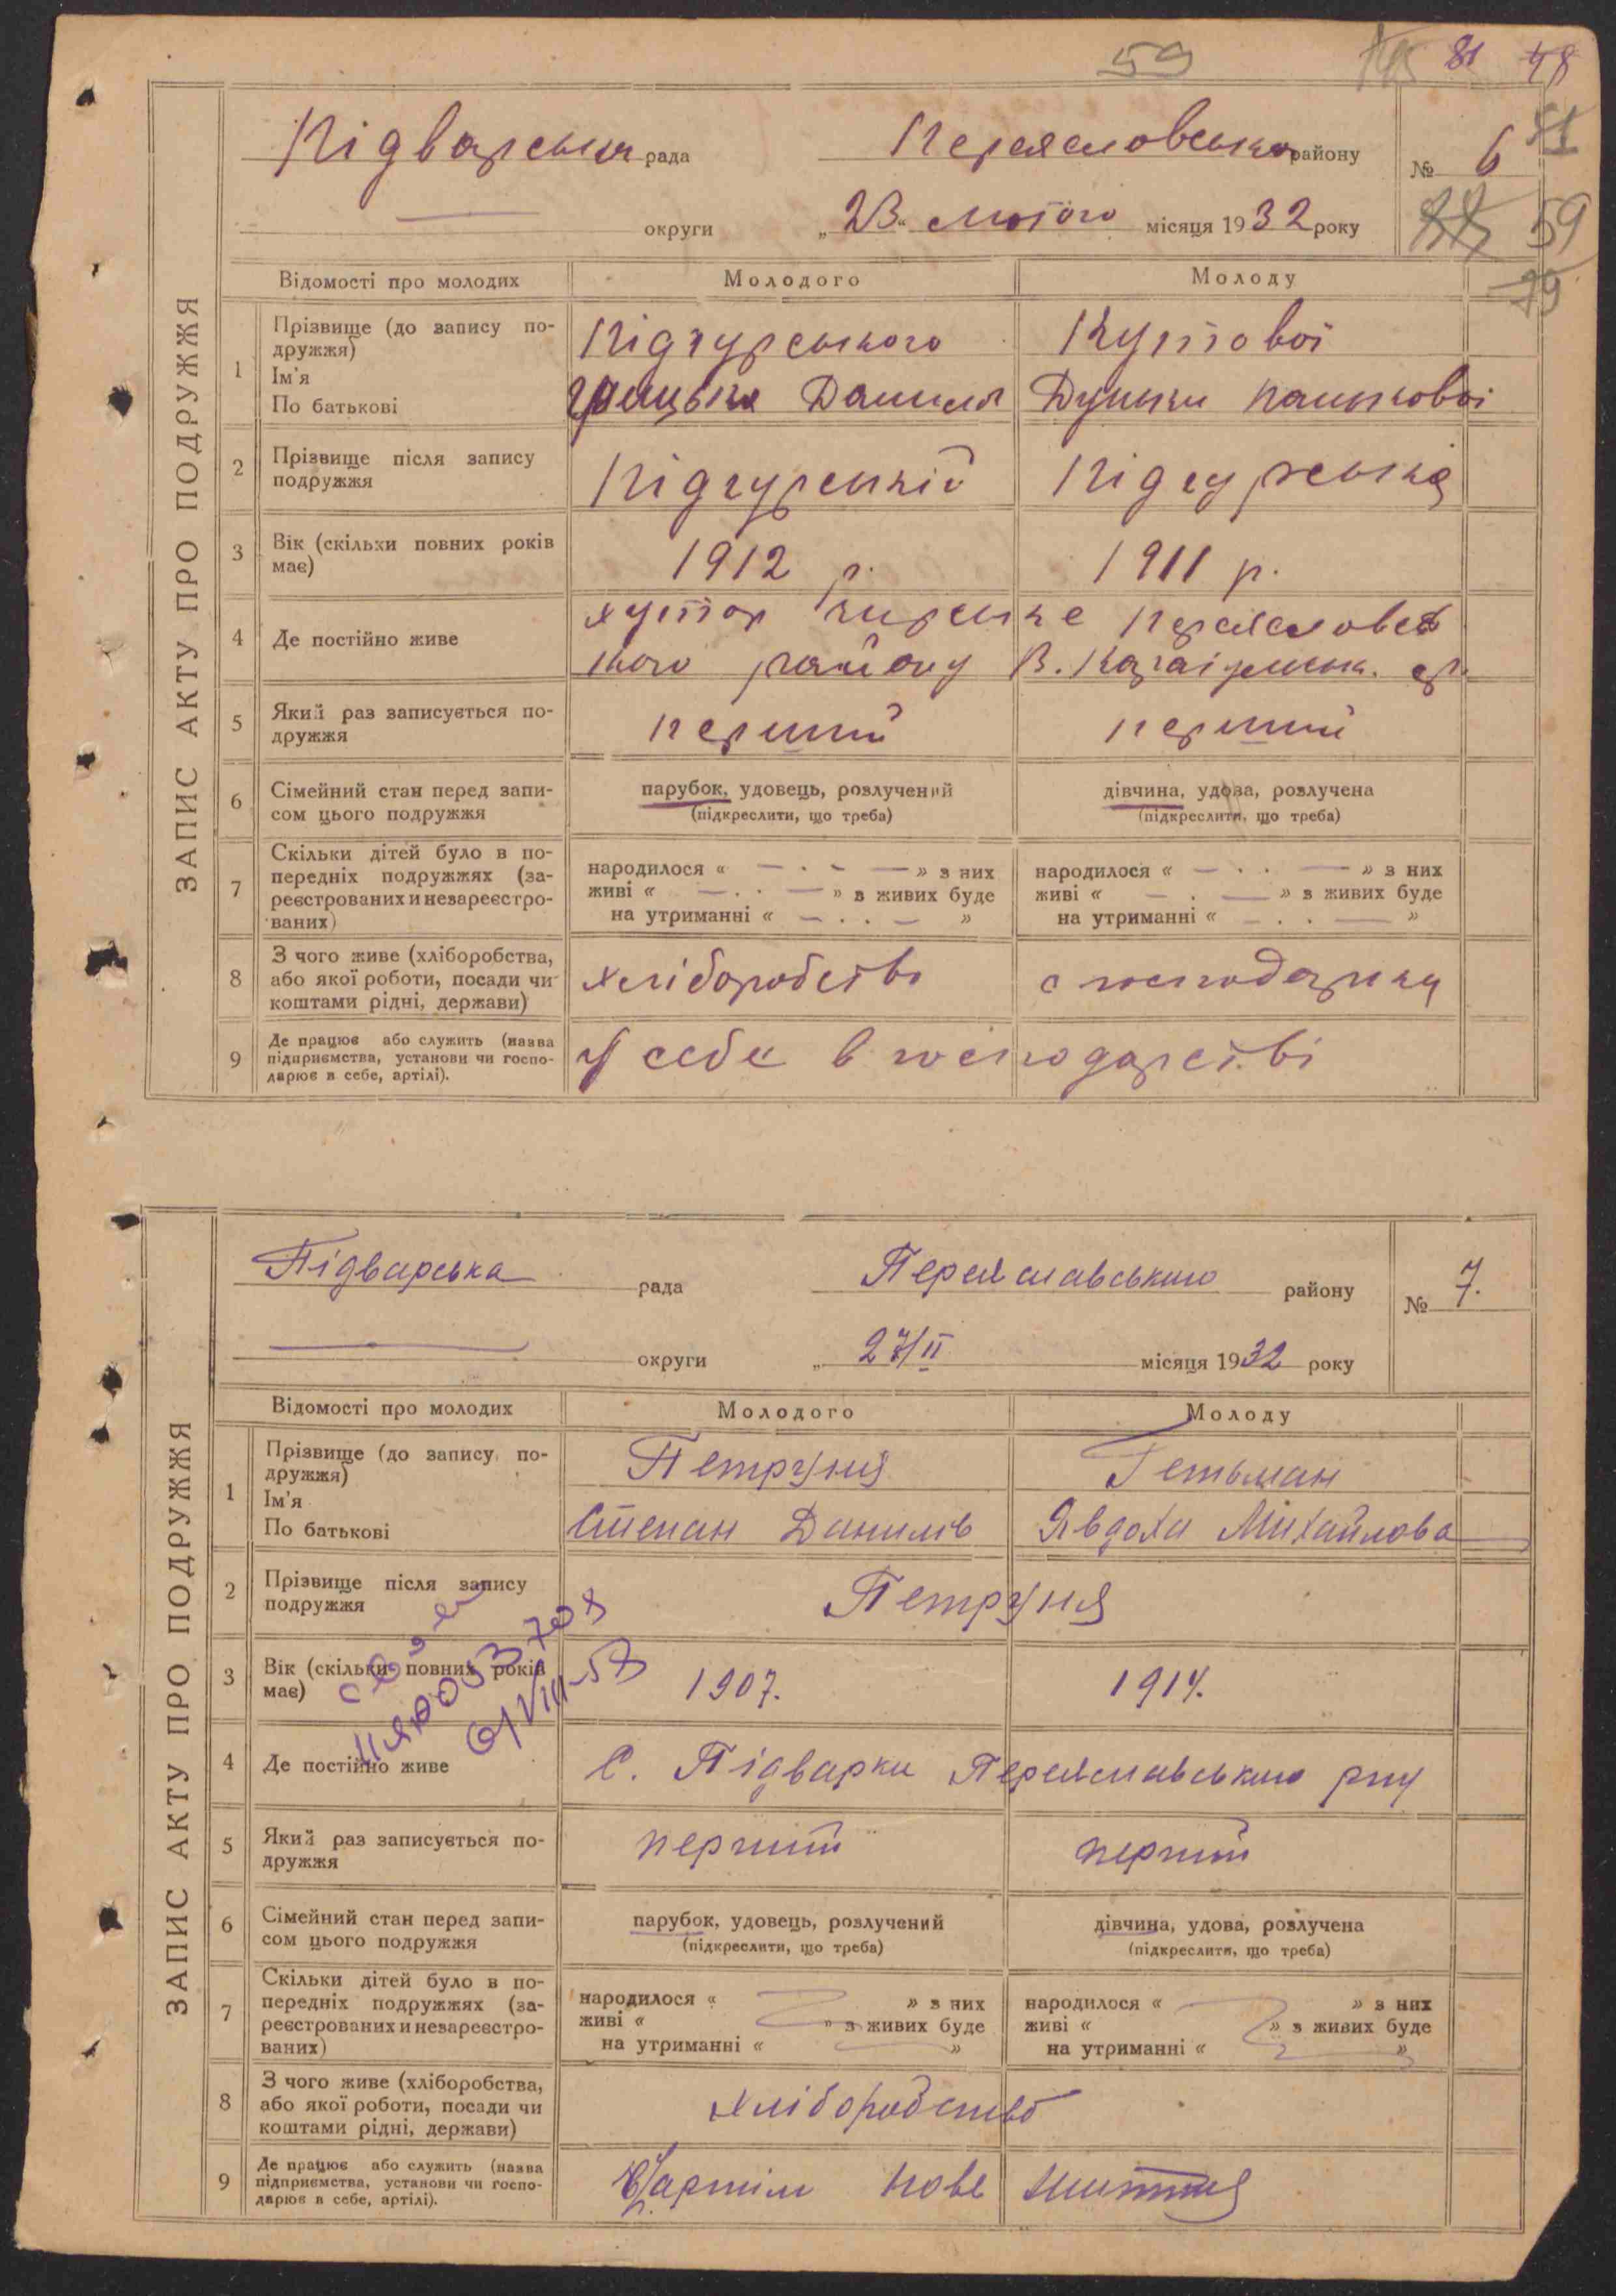 59 81 48
51
ЗАПИС АКТУ ПРО ПОДРУЖЖЯ
Підварська рада Переясловсько району № 6
округи „23“ лютого місяця 1932 року 59
79
Відомості про молодих Молодого Молоду
1 Прізвище (до запису по-
дружжя)
Ім'я
По батькові
Підгурського Кутової
Грицька Данила Дуньки Панькової
2 Прізвище після запису
подружжя
Підгурський Підгурська
3 Вік (скільки повних років
має)
1912 р. 1911 р.
4 Де постійно живе
хутор Переясловсь
кого району
5 Який раз записується по-
дружжя
перший перший
6 Сімейний стан перед запи-
сом цього подружжя
парубок, удовець, розлучений
(підкреслити, що треба)
дівчина, удова, розлучена
(підкреслити, що треба)
7 Скільки дітей було в по-
передніх подружжях (за-
реєстрованих и незареєстро-
ваних)
народилося « — » з них
живі « — » з живих буде
на утриманні « — »
народилося « — » з них
живі « — » з живих буде
на утриманні « — »
8 З чого живе (хліборобства,
або якої роботи, посади чи
коштами рідні, держави)
хліборобство
9 Де працює або служить (назва
підприємства, установи чи госпо-
дарює в себе, артілі).
У себе в господарстві
ЗАПИС АКТУ ПРО ПОДРУЖЖЯ
Підварська рада Переяславського району № 7.
округи „ 27/II місяця 1932 року
Відомості про молодих Молодого Молоду
1 Прізвище (до запису по-
дружжя)
Ім'я
По батькові
Петруня Гетьман
Степан Данилів Явдоха Михайлова
2 Прізвище після запису
подружжя
Петруня
3 Вік (скільки повних років
має)
1907. 1914.
4 Де постійно живе
С. Підварки Переяславського р-ну
5 Який раз записується по-
дружжя
перший перший
6 Сімейний стан перед запи-
сом цього подружжя
парубок, удовець, розлучений
(підкреслити, що треба)
дівчина, удова, розлучена
(підкреслити, що треба)
7 Скільки дітей було в по-
передніх подружжях (за-
реєстрованих и незареєстро-
ваних)
народилося « » з них
живі « » з живих буде
на утриманні « »
народилося « » з них
живі « » з живих буде
на утриманні « »
8 З чого живе (хліборобства,
або якої роботи, посади чи
коштами рідні, держави)
хліборобство
9 Де працює або служить (назва
підприємства, установи чи госпо-
дарює в себе, артілі).
артіли Нове життя